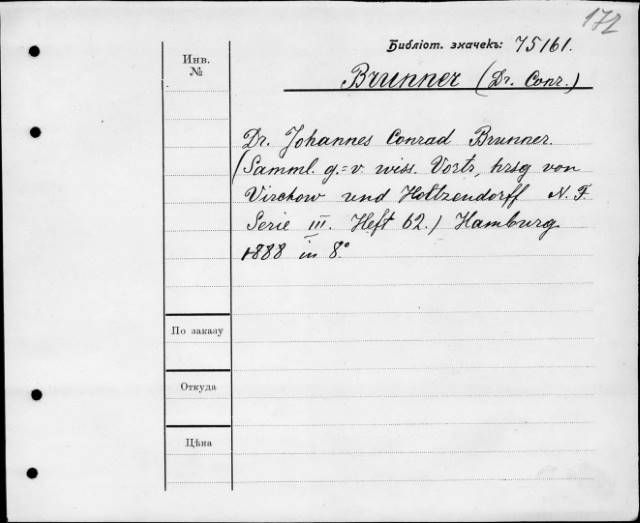 172
Библіот. значекъ: 75161.
Инв.
№
Brunner (Dr. Conr.)
Dr. Johannes Conrad Brunner.
(Samml. g.=v. wiss. Vortr, hrsg von
Virchow und Holtzendorff N. F.
Serie III. Heft 62.) Hamburg
1888 in 8°
По заказу
Откуда
Цѣна